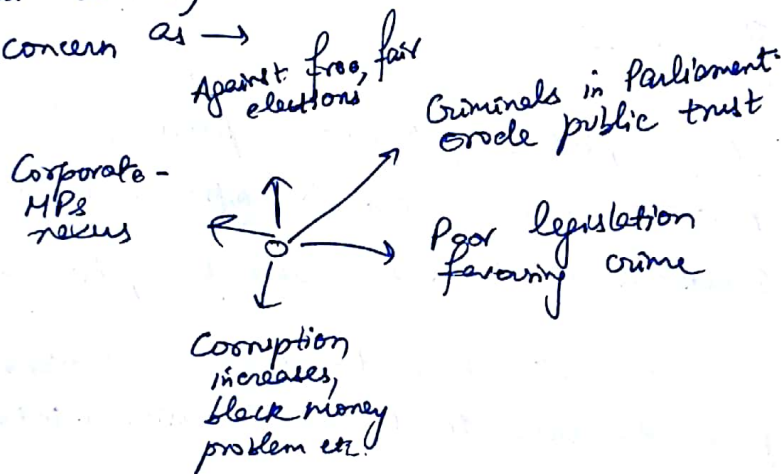 concern as →
Against free, fair
elections
Criminals in Parliament.
erode public trust
Corporate -
MPs
nexus
Poor legislation
favouring crime
Corruption
increases,
black money
problem etc.